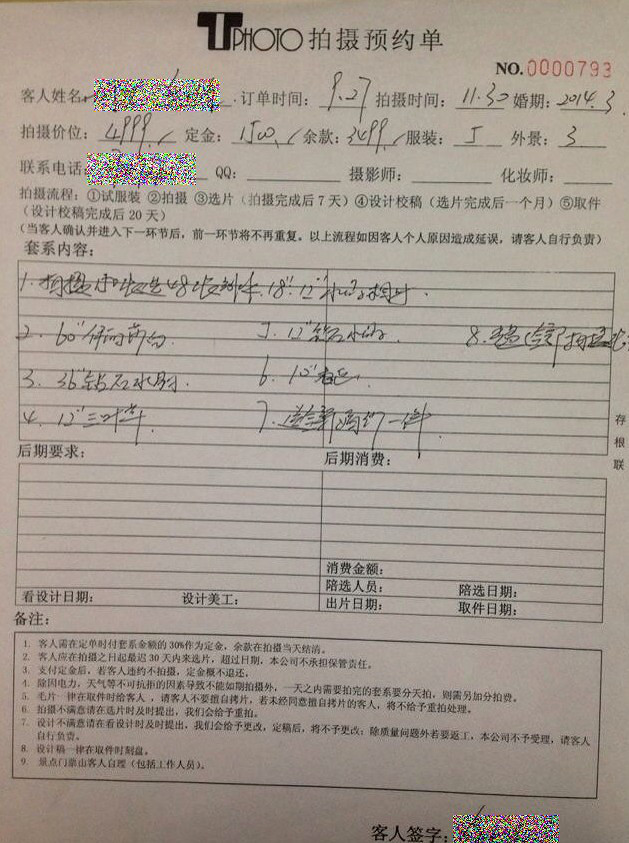 T PHOTO 拍摄预约单
NO.0000793
客人姓名: 订单时间: 9.27 拍摄时间: 11.30 婚期: 2014.3.
拍摄价位: 4999. 定金: 1500. 余款: 3499 服装: 5 外景: 3
联系电话: QQ: 摄影师: 化妆师:
拍摄流程: ①试服装 ②拍摄 ③选片(拍摄完成后7天)④设计校稿(选片完成后一个月)⑤取件
(设计校稿完成后 20 天)
(当客人确认并进入下一环节后,前一环节将不再重复。以上流程如因客人个人原因造成延误,请客人自行负责)
套系内容:
1. 拍摄 48 18" 12"
2. 60" 5. 12" 钻石水晶 8.
3. 36" 钻石水晶 6. 10"
4. 12" 三叶草 7. 送 婚纱一件
存根联
后期要求: 后期消费:
消费金额:
陪选人员: 陪选日期:
看设计日期: 设计美工: 出片日期: 取件日期:
备注:
1. 客人需在定单时付套系金额的30%作为定金,余款在拍摄当天结清。
2. 客人应在拍摄之日起最迟30天内来选片,超过日期,本公司不承担保管责任。
3. 支付定金后,若客人违约不拍摄,定金概不退还。
4. 除因电力,天气等不可抗拒的因素导致不能如期拍摄外,一天之内需要拍完的套系要分天拍,则需另加分拍费。
5. 毛片一律在取件时给客人,请客人不要擅自拷片,若未经同意擅自拷片的客人,将不给予重拍处理。
6. 拍摄不满意请在选片时及时提出,我们会给予重拍。
7. 设计不满意请在看设计时及时提出,我们会给予更改,定稿后,将不予更改;除质量问题外若要返工,本公司不予受理,请客人
自行负责。
8. 设计稿一律在取件时刻盘。
9. 景点门票由客人自理(包括工作人员)。
客人签字: